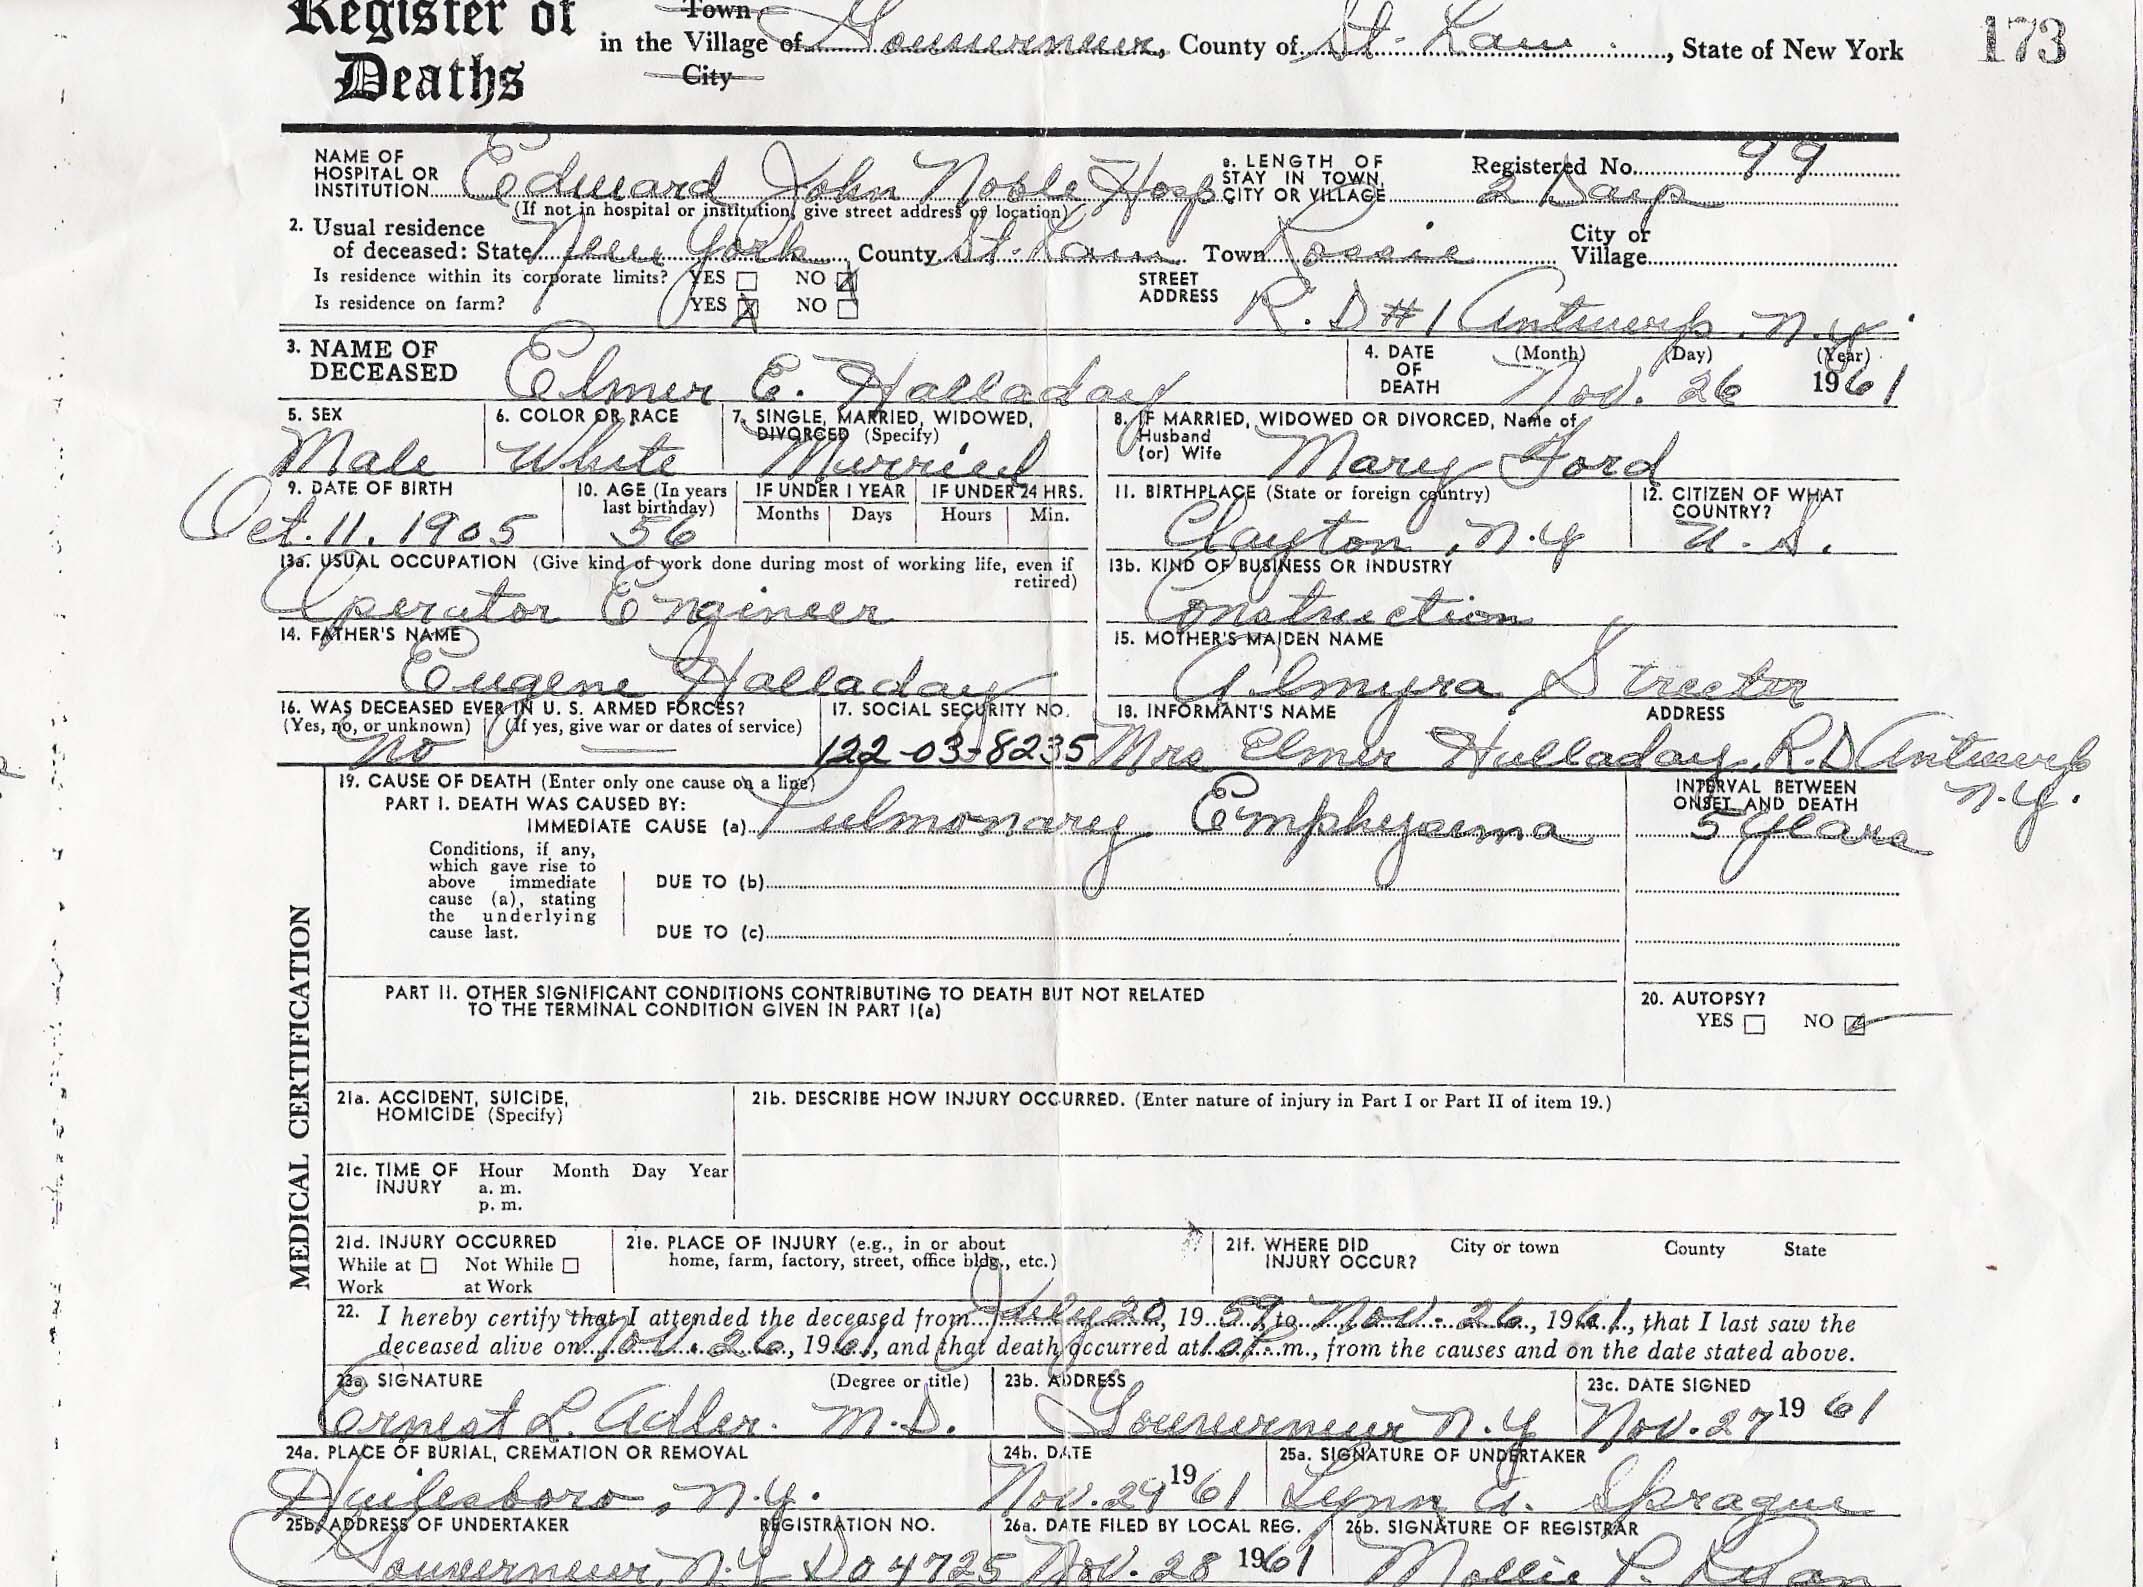 Register of Town
in the Village of Gouverneur, County of St. Law., State of New York 173
Deaths City
NAME OF HOSPITAL OR INSTITUTION Edward John Noble Hosp e. LENGTH OF STAY IN TOWN, CITY OR VILLAGE 2 Days Registered No. 99
(If not in hospital or institution, give street address or location)
2. Usual residence of deceased: State New York County St. Law. Town Rossie City or Village
Is residence within its corporate limits? YES NO
Is residence on farm? YES NO
STREET ADDRESS R. D #1 Antwerp, N.Y.
3. NAME OF DECEASED Elmer E. Halladay 4. DATE OF DEATH (Month) (Day) (Year) Nov. 26 1961
5. SEX 6. COLOR OR RACE 7. SINGLE, MARRIED, WIDOWED, DIVORCED (Specify) 8. IF MARRIED, WIDOWED OR DIVORCED, Name of Husband (or) Wife
Male White Married Mary Ford
9. DATE OF BIRTH 10. AGE (In years last birthday) IF UNDER 1 YEAR Months Days IF UNDER 24 HRS. Hours Min. 11. BIRTHPLACE (State or foreign country) 12. CITIZEN OF WHAT COUNTRY?
Oct. 11. 1905 56 Clayton, N.Y U. S.
13a. USUAL OCCUPATION (Give kind of work done during most of working life, even if retired) 13b. KIND OF BUSINESS OR INDUSTRY
Operator Engineer Construction
14. FATHER'S NAME 15. MOTHER'S MAIDEN NAME
Eugene Halladay Almyra Streeter
16. WAS DECEASED EVER IN U. S. ARMED FORCES? 17. SOCIAL SECURITY NO. 18. INFORMANT'S NAME ADDRESS
(Yes, no, or unknown) (If yes, give war or dates of service)
no 122-03-8235 Mrs Elmer Halladay, R.D Antwerp N.Y.
19. CAUSE OF DEATH (Enter only one cause on a line) INTERVAL BETWEEN ONSET AND DEATH
PART I. DEATH WAS CAUSED BY:
IMMEDIATE CAUSE (a) Pulmonary Emphysema 5 years
Conditions, if any, which gave rise to above immediate cause (a), stating the underlying cause last.
DUE TO (b)
DUE TO (c)
MEDICAL CERTIFICATION
PART II. OTHER SIGNIFICANT CONDITIONS CONTRIBUTING TO DEATH BUT NOT RELATED
TO THE TERMINAL CONDITION GIVEN IN PART I(a)
20. AUTOPSY?
YES NO
21a. ACCIDENT, SUICIDE, HOMICIDE (Specify) 21b. DESCRIBE HOW INJURY OCCURRED. (Enter nature of injury in Part I or Part II of item 19.)
21c. TIME OF INJURY Hour a. m. p. m. Month Day Year
21d. INJURY OCCURRED While at Work Not While at Work 21e. PLACE OF INJURY (e.g., in or about home, farm, factory, street, office bldg., etc.) 21f. WHERE DID INJURY OCCUR? City or town County State
22. I hereby certify that I attended the deceased from July 20, 1959, to Nov. 26, 1961, that I last saw the
deceased alive on Nov. 26, 1961, and that death occurred at m., from the causes and on the date stated above.
23a. SIGNATURE (Degree or title) 23b. ADDRESS 23c. DATE SIGNED
Ernest L. Adler. M.D. Gouverneur N.Y Nov. 27 1961
24a. PLACE OF BURIAL, CREMATION OR REMOVAL 24b. DATE 25a. SIGNATURE OF UNDERTAKER
Hailesboro, N.Y. Nov. 29 1961 Lynn A. Sprague
25b. ADDRESS OF UNDERTAKER REGISTRATION NO. 26a. DATE FILED BY LOCAL REG. 26b. SIGNATURE OF REGISTRAR
Gouverneur, N.Y 04725 Nov. 28 1961 Mollie P. Ryan